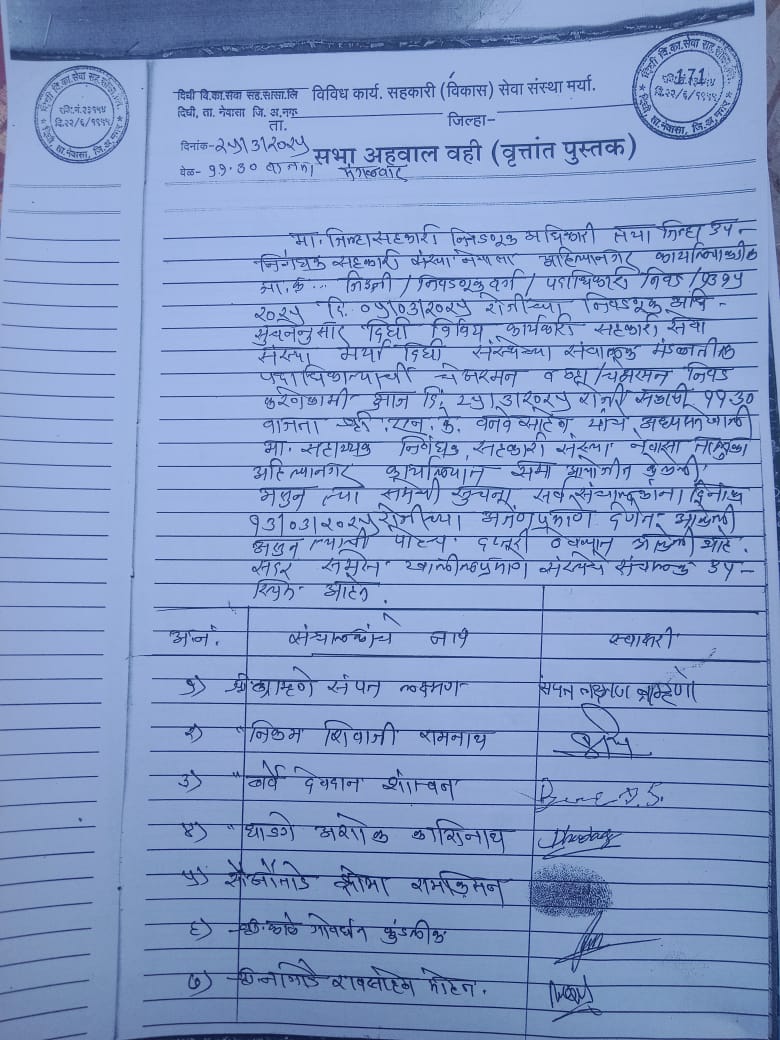 दिघी वि.का.सेवा सह.संस्था.लि विविध कार्य. सहकारी (विकास) सेवा संस्था मर्या.
दिघी, ता. नेवासा जि.अ.नगर
ता. जिल्हा-
171
दिनांक- २५/३/२०२५ सभा अहवाल वही (वृत्तांत पुस्तक)
वेळ- ११.३० वाजता मंगळवार
मा. जिल्हा सहकारी निवडणूक अधिकारी तथा जिल्हा उप-
निबंधक सहकारी संस्था अहिल्यानगर
जा.क्र... जिउनी / निवडणूक वर्ग / पदाधिकारी निवड /
२०२५ दि. ०५/०३/२०२५ रोजीच्या निवडणूक अधि-
सुचनेनुसार दिघी विविध कार्यकारी सहकारी सेवा
संस्था मर्या दिघी संस्थेच्या संचालक मंडळातील
पदाधिकाऱ्यांची चेअरमन व व्हा/चेअरमन निवड
करणेकामी आज दि. २५/३/२०२५ रोजी सकाळी ११.३०
वाजता श्री. एन. के. वनवे साहेब यांचे अध्यक्षतेखाली
मा. सहाय्यक निबंधक, सहकारी संस्था नेवासा तालुका
अहिल्यानगर कार्यालयात सभा आयोजीत केलेली
असुन त्या सभेची सुचना सर्व संचालकांना दिनांक
१३/०३/२०२५ रोजीच्या प्रमाणे देणेत आलेली
असुन त्याची पोहच दप्तरी ठेवण्यात आलेली आहे.
सदर सभेस खालीलप्रमाणे संस्थेचे संचालक उप-
स्थित आहेत.
अ.नं. संचालकांचे नाव स्वाक्षरी
१) श्री. ब्राम्हणे संपत लक्ष्मण संपत लक्ष्मण ब्राम्हणे
२) " निकम शिवाजी रामनाथ
३) " बर्वे देवदान शांतवन
४) " घाडगे अशोक काशिनाथ
५) सौ. नागोडे शोभा रामकिसन
६) श्री. काळे गोवर्धन कुंडलीक
७) श्री. नागोडे रावसाहेब मोहन.